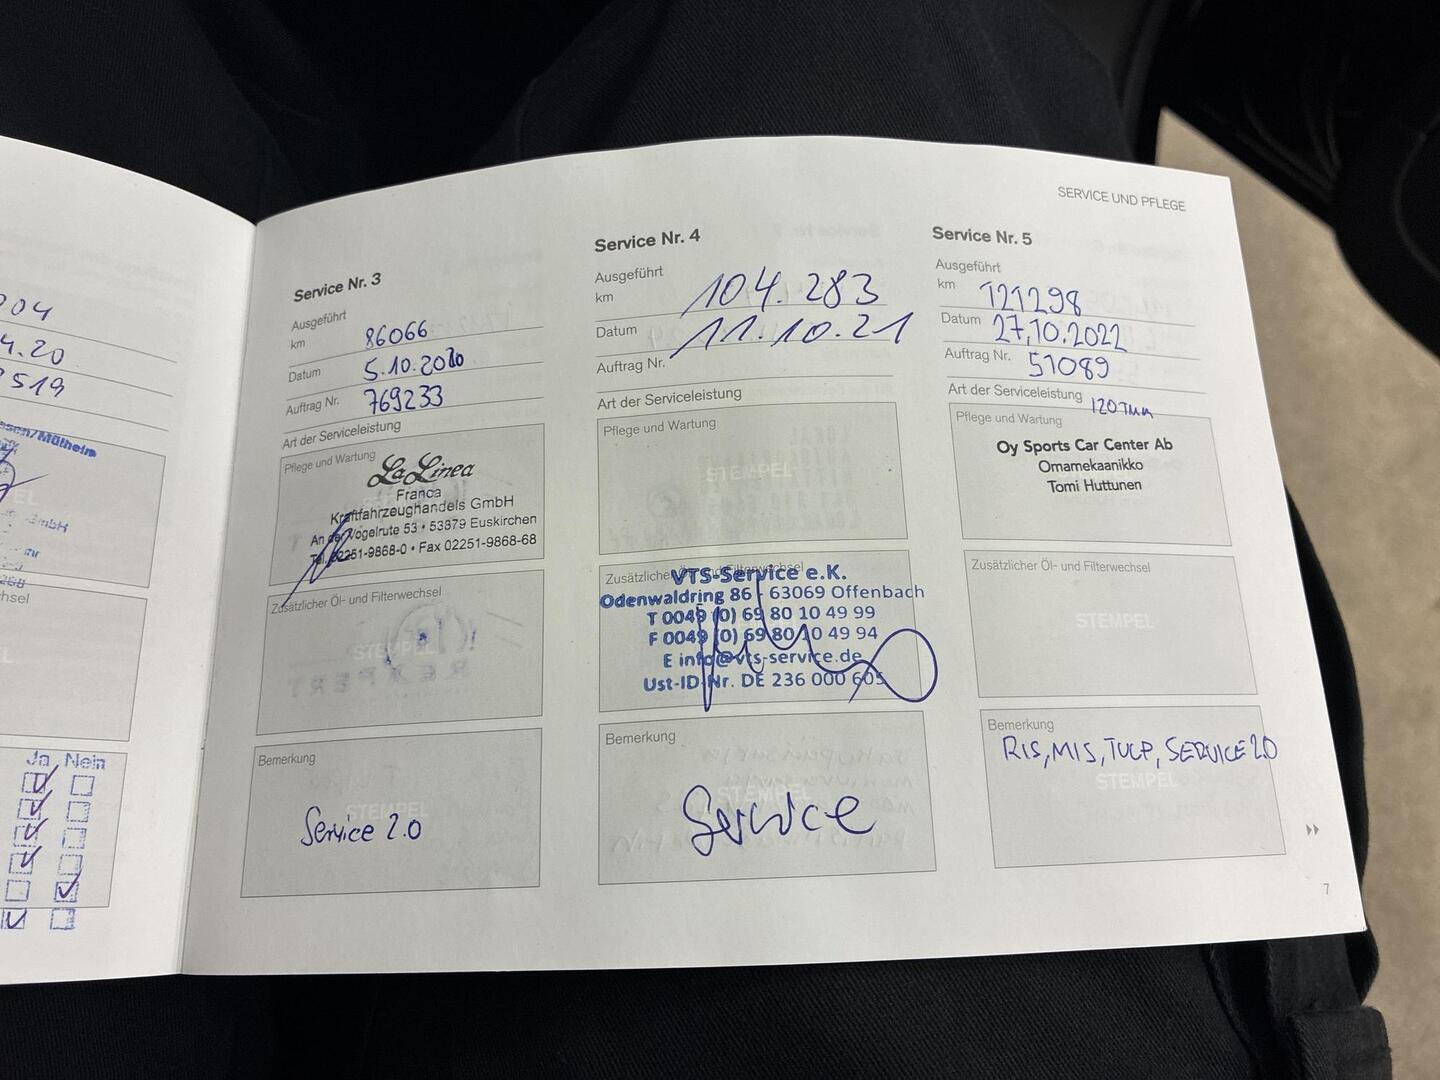 SERVICE UND PFLEGE
04
4.20
519
sen/Mülheim
GmbH
Ja Nein
Service Nr. 3
Ausgeführt
km 86066
Datum 5.10.2020
Auftrag Nr. 769233
Art der Serviceleistung
Pflege und Wartung
La Linea
Franca
Kraftfahrzeughandels GmbH
An der Vogelrute 53 • 53879 Euskirchen
Tel. 02251-9868-0 • Fax 02251-9868-68
Zusätzlicher Öl- und Filterwechsel
STEMPEL
Bemerkung
STEMPEL
Service 2.0
Service Nr. 4
Ausgeführt
km 104.283
Datum 11.10.21
Auftrag Nr.
Art der Serviceleistung
Pflege und Wartung
STEMPEL
Zusätzlicher Öl- und Filterwechsel
VTS-Service e.K.
Odenwaldring 86 - 63069 Offenbach
T 0049 (0) 69 80 10 49 99
F 0049 (0) 69 80 10 49 94
E info@vts-service.de
Ust-ID-Nr. DE 236 000 605
Bemerkung
STEMPEL
Service
Service Nr. 5
Ausgeführt
km 121298
Datum 27.10.2022
Auftrag Nr. 51089
Art der Serviceleistung
120TKM
Pflege und Wartung
Oy Sports Car Center Ab
Omamekaanikko
Tomi Huttunen
Zusätzlicher Öl- und Filterwechsel
STEMPEL
Bemerkung
RIS, MIS, TULP, SERVICE 2.0
STEMPEL
7